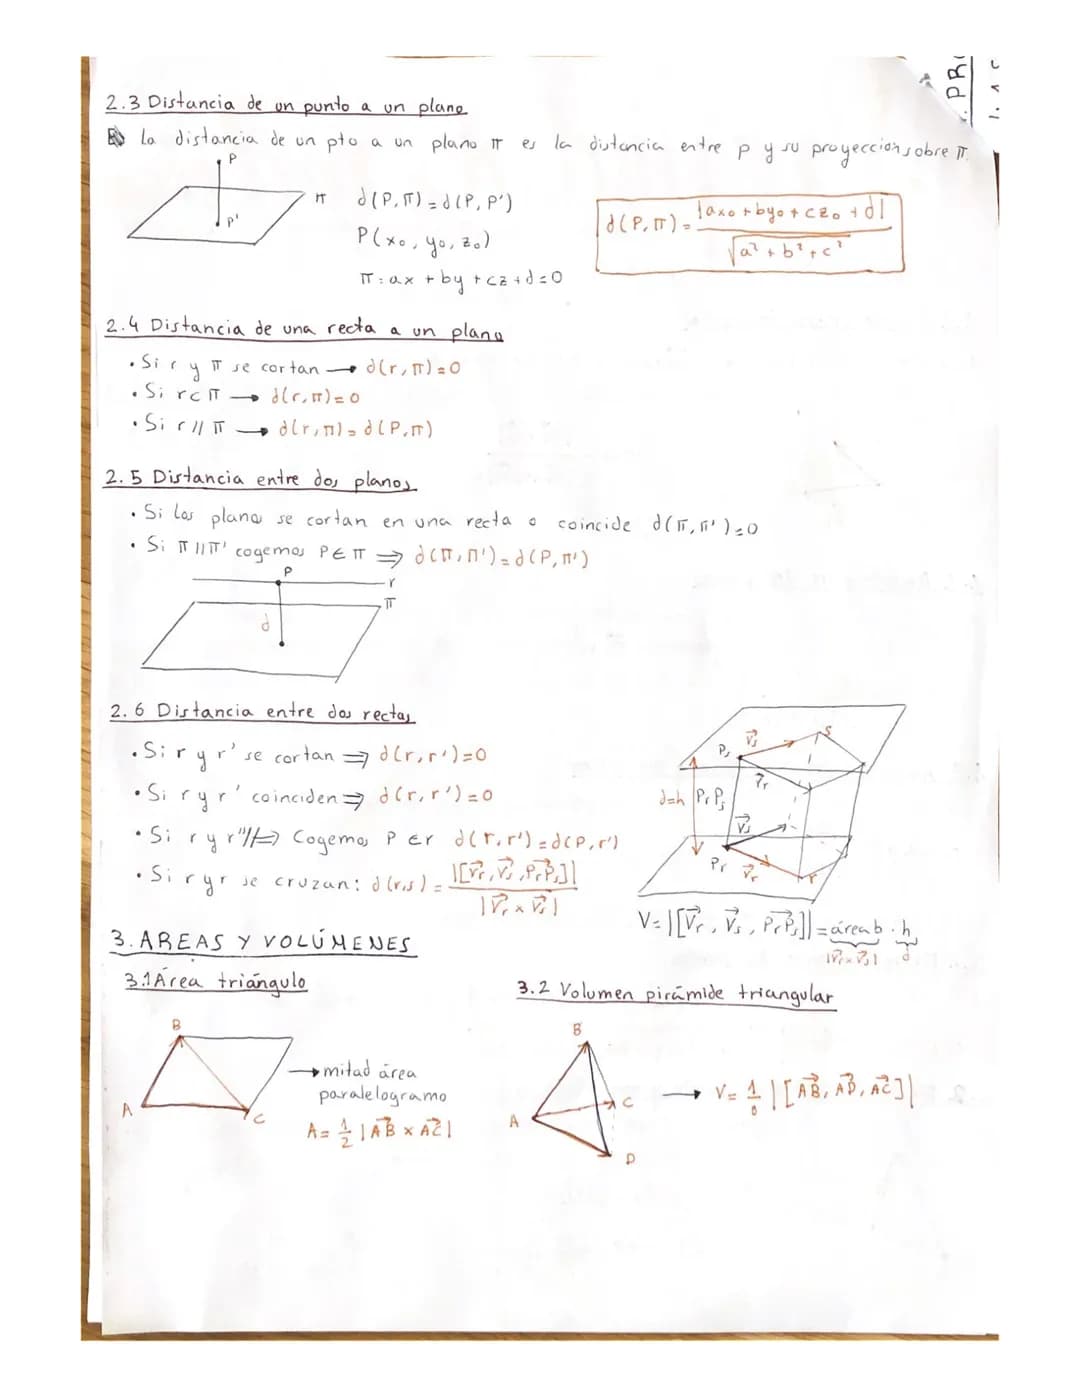 . PRO
1. A C
2.3 Distancia de un punto a un plano
la distancia de un pto a un plano π es la distancia entre p y su proyección sobre π.
P
P'
π
d(P,π)=d(P,P')
P(x₀, y₀, z₀)
π: ax + by + cz + d = 0
d(P,π) = |ax₀ + by₀ + cz₀ + d| / √a² + b² + c²
2.4 Distancia de una recta a un plano
• Si r y π se cortan → d(r,π)=0
• Si r⊂π → d(r,π)=0
• Si r // π → d(r,π)=d(P,π)
2.5 Distancia entre dos planos
• Si los planos se cortan en una recta o coincide d(π,π')=0
• Si π//π' cogemos P∈π ⇒ d(π,π')=d(P,π')
P
r
π
d
2.6 Distancia entre dos rectas
• Si r y r' se cortan ⇒ d(r,r')=0
• Si r y r' coinciden ⇒ d(r,r')=0
• Si r y r' // ⇒ Cogemos P∈r d(r,r')=d(P,r')
• Si r y r se cruzan: d(r,s) = |[v⃗r, v⃗s, PrPs]| / |v⃗r × v⃗s|
Ps
v⃗s
s
v⃗r
d=h
PrPs
v⃗s
Pr
v⃗r
r
V = |[v⃗r, v⃗s, PrPs]| = área b · h
|v⃗r × v⃗s| d
3. AREAS Y VOLÚMENES
3.1 Área triángulo
B
A
C
→ mitad área
paralelogramo
A = 1/2 |AB⃗ × AC⃗|
3.2 Volumen pirámide triangular
B
A
C
D
→ V = 1/6 |[AB⃗, AD⃗, AC⃗]|